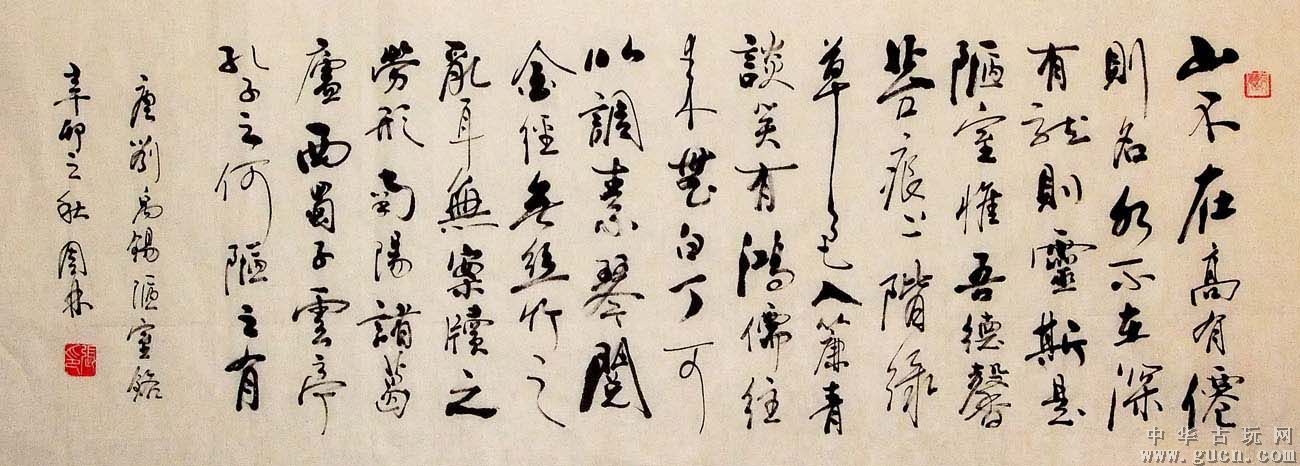 山不在高有僊
則名水不在深
有龍則靈斯是
陋室惟吾德馨
苔痕上階緑
草色入簾青
談笑有鴻儒往
來無白丁可
以調素琴閲
金經無絲竹之
亂耳無案牘之
勞形南陽諸葛
廬西蜀子雲亭
孔子云何陋之有
唐劉禹錫陋室銘
辛卯之秋
中华古玩网
www.gucn.com